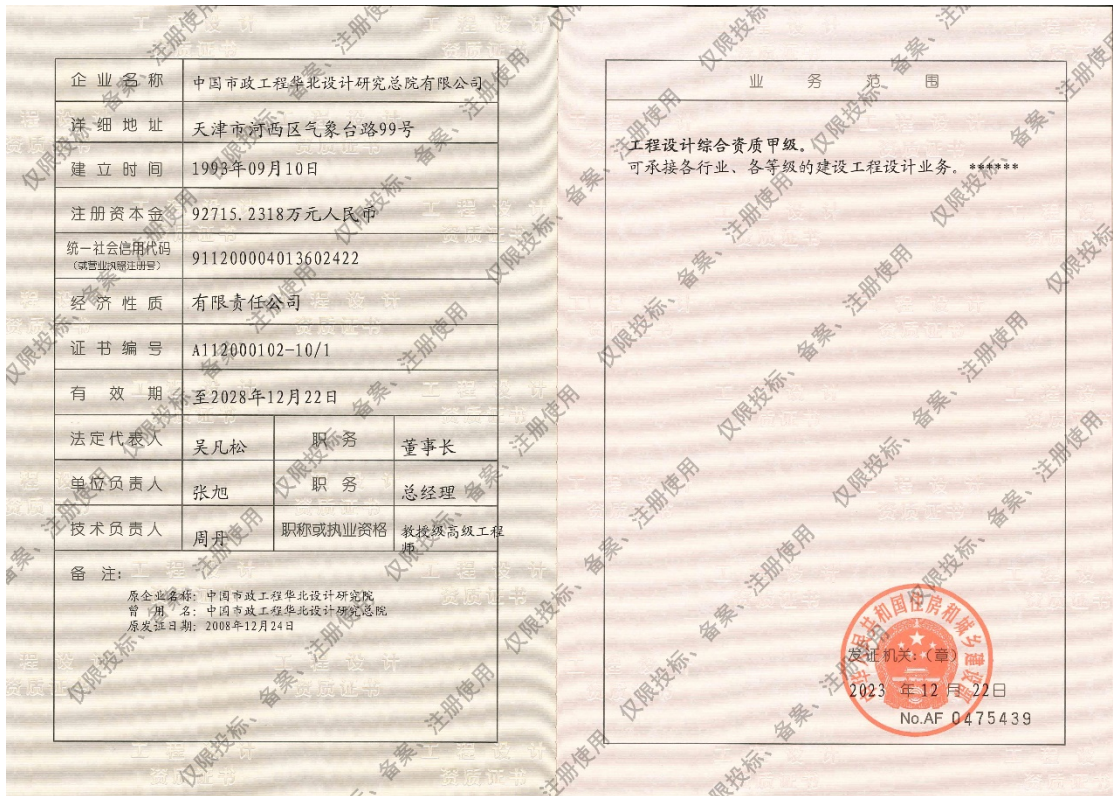 企业名称 中国市政工程华北设计研究总院有限公司
详细地址 天津市河西区气象台路99号
建立时间 1993年09月10日
注册资本金 92715.2318万元人民币
统一社会信用代码
(或营业执照注册号)
911200004013602422
经济性质 有限责任公司
证书编号 A112000102-10/1
有效期 至2028年12月22日
法定代表人 吴凡松 职务 董事长
单位负责人 张旭 职务 总经理
技术负责人 周丹 职称或执业资格 教授级高级工程
师
备注:
原企业名称: 中国市政工程华北设计研究院
曾用名: 中国市政工程华北设计研究总院
原发证日期: 2008年12月24日
业务范围
工程设计综合资质甲级。
可承接各行业、各等级的建设工程设计业务。******
中华人民共和国住房和城乡建设部
发证机关:(章)
2023年12月22日
No.AF 0475439
仅限投标、备案、注册使用
工程设计
资质证书